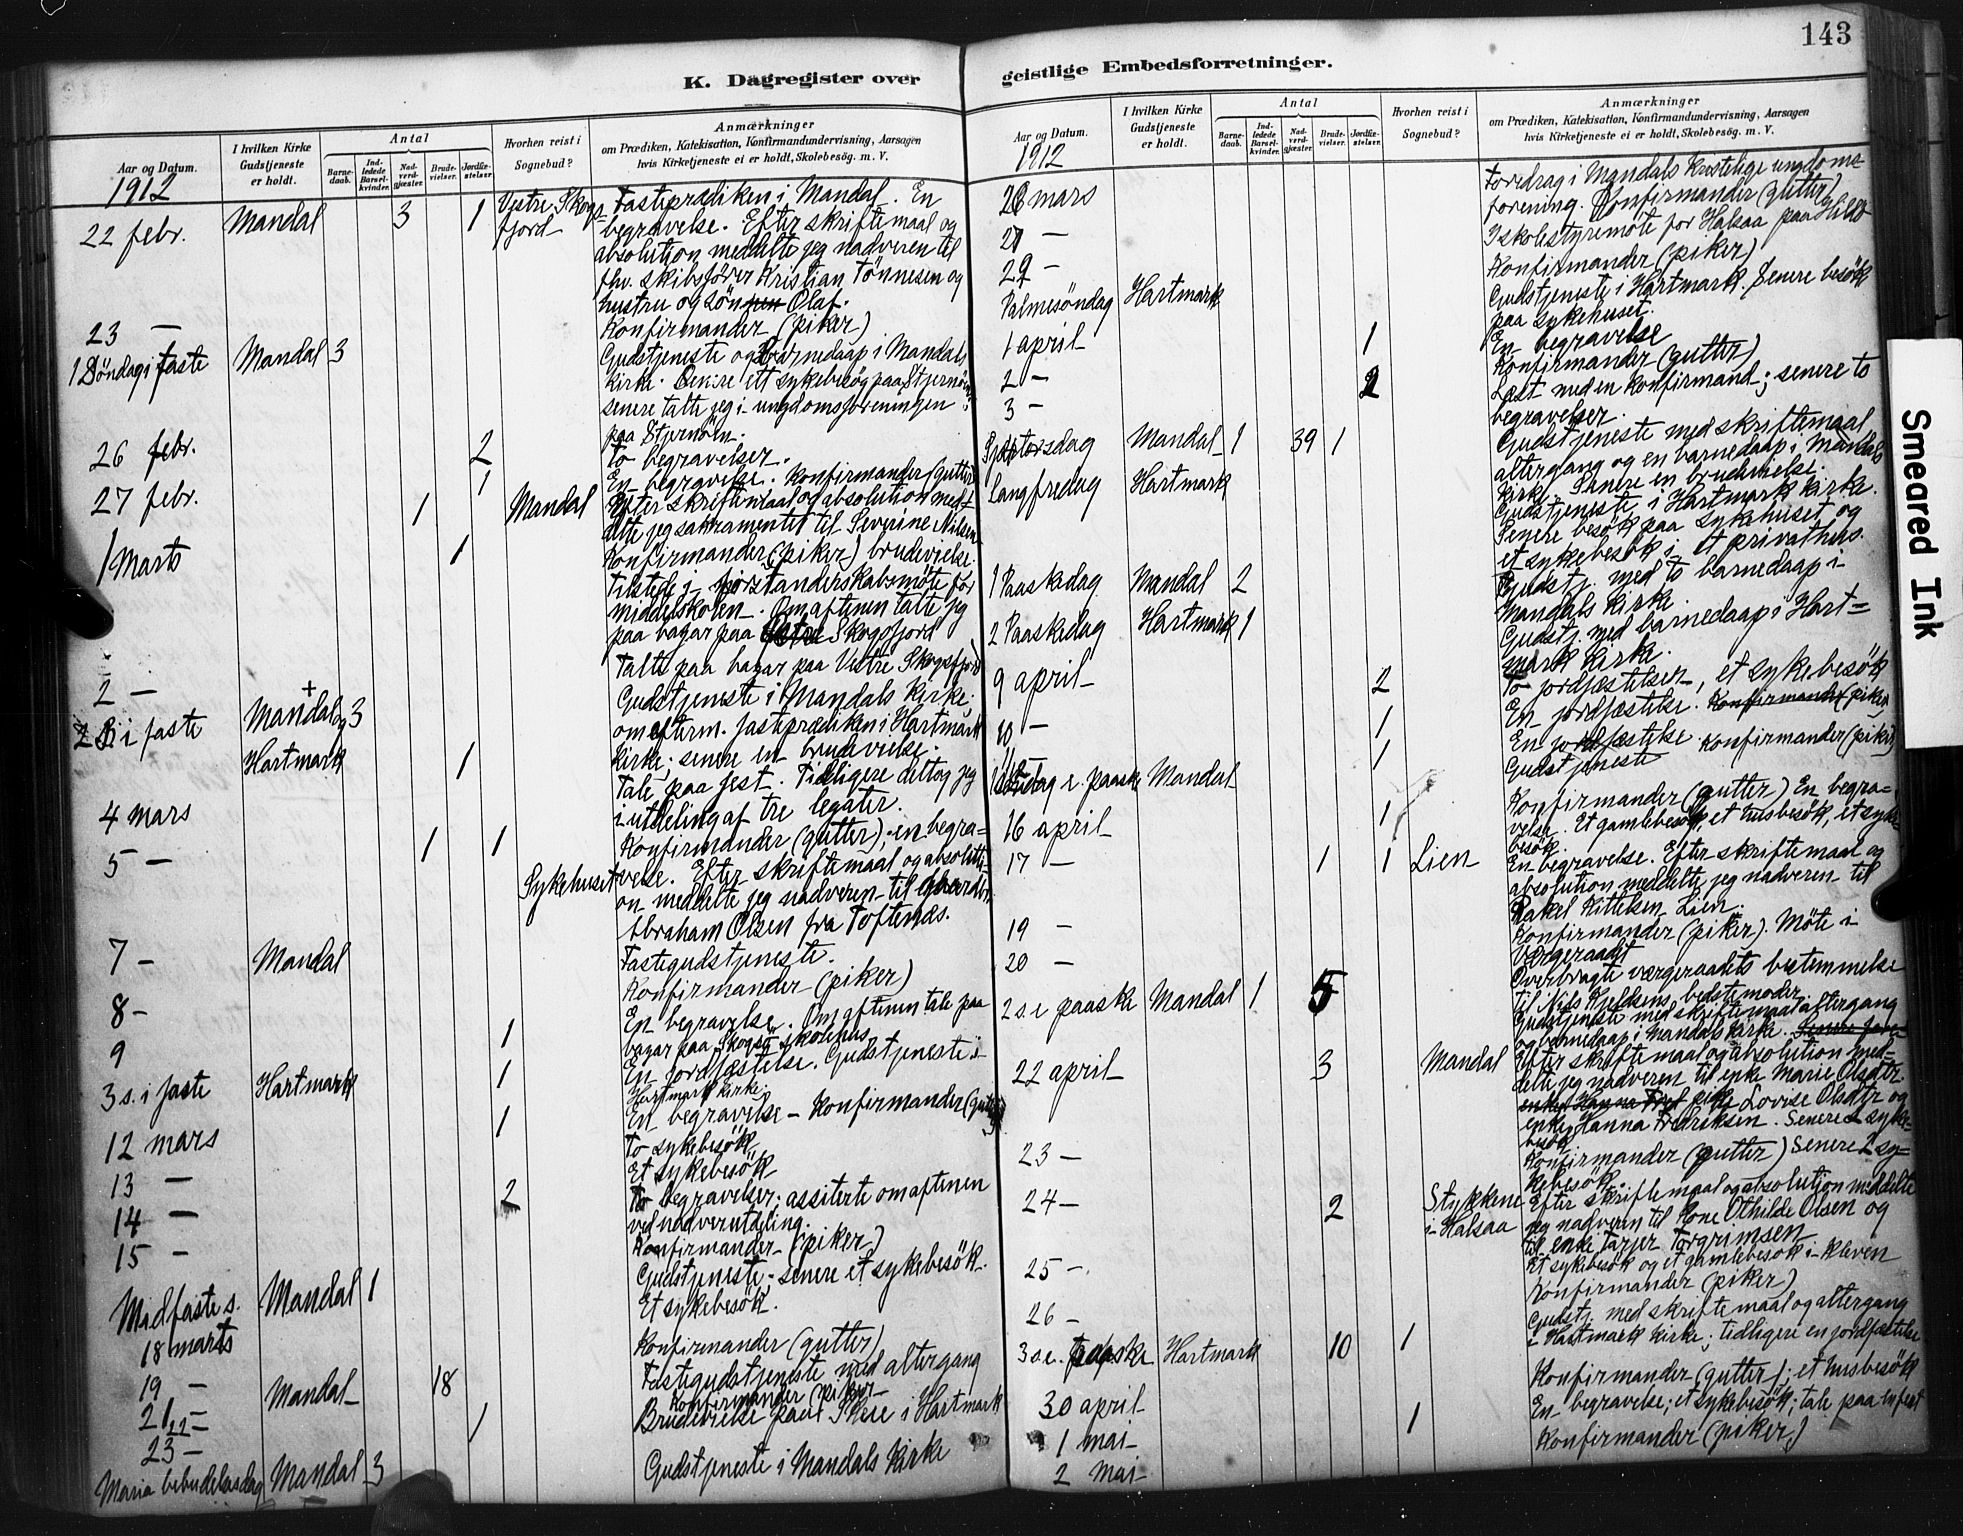 143
K. Dagregister over
Aar og Datum.
I hvilken Kirke Gudstjeneste er holdt.
Antal
Barne-daab.
Ind-ledede Barsel-kvinder.
Nad-verd-gjæster.
Brude-vielser.
Jordfæ-stelser.
Hvorhen reist i Sognebud?
Anmærkninger
om Prædiken, Katekisation, Konfirmandundervisning, Aarsagen
hvis Kirketjeneste ei er holdt, Skolebesög. m. V.
1912
22 febr. Mandal 3 1 Vestre Skogs-fjord Fasteprædiken i Mandal. En
begravelse. Efter skriftemaal og
absolution meddelte jeg nadveren til
fhv. skibsförer Kristian Tönnesen og
hustru og sön Olaf.
23 — Konfirmander (piker)
1 Söndag i faste Mandal 3 Gudstjeneste og 3 barnedaap i Mandals
kirke. Senere ett sykebesög paa Stjernöen;
senere talte jeg i ungdomsforeningen
paa Stjernöen.
26 febr. 2 To begravelser.
27 febr. 1 En begravelse. Konfirmander (gutter)
1 Mandal Efter skriftemaal og absolution med-
delte jeg sakramentet til Severine Nilsen
1 Marts 1 Konfirmander (piker) brudevielse.
Tilstede i forstanderskabsmöte for
middelskolen. Om aftenen talte jeg
paa bazar paa Skogsfjord
2 — Talte paa bazar paa Vestre Skogsfjord
2 S. i faste Mandal og 3 Hartmark Gudstjeneste i Mandals kirke;
om efterm. fasteprædiken i Hartmark
1 kirke; senere en brudevielse.
4 mars Tale paa fest. Tidligere deltog jeg
i utdeling af tre legater.
5 — 1 1 Konfirmander (gutter); en begra=
Sykehuset velse. Efter skriftemaal og absoluti-
on meddelte jeg nadveren til
Abraham Olsen fra Toftenæs.
7 — Mandal Fastegudstjeneste.
8 — Konfirmander (piker)
9 1 En begravelse. Om aftenen tale paa
bazar paa Skogsö skolehus.
3 s. i faste Hartmark 1 En jordfæstelse. Gudstjeneste i
Hartmark kirke.
12 mars 1 En begravelse – Konfirmander (gutter)
To sykebesök
13 — Et sykebesök
14 — 2 To begravelser; assisterte om aftenen
ved nadverutdeling.
15 — Konfirmander (piker)
Midfaste s. Mandal 1 Gudstjeneste; senere et sykebesök.
18 marts Et sykebesök.
19 — Konfirmander (gutter)
21 — Mandal 18 Fastegudstjeneste med altergang
22 — Konfirmander (piker
23 — 1 Brudevielse paa Skeie i Hartmark
Maria bebudelsesdag Mandal 3 Gudstjeneste i Mandals kirke
geistlige Embedsforretninger.
Aar og Datum.
I hvilken Kirke Gudstjeneste er holdt.
Antal
Barne-daab.
Ind-ledede Barsel-kvinder.
Nad-verd-gjæster.
Brude-vielser.
Jordfæ-stelser.
Hvorhen reist i Sognebud?
Anmærkninger
om Prædiken, Katekisation, Konfirmandundervisning, Aarsagen
hvis Kirketjeneste ei er holdt, Skolebesög. m. V.
1912
26 mars Foredrag i Mandals kristelige ungdoms-
forening. Konfirmander (gutter)
27 — I skolestyremöte for Halsaa paa Hille
29 — Konfirmander (piker)
Palmesöndag Hartmark Gudstjeneste i Hartmark. Senere besök
paa sykehuset.
1 april 1 En begravelse
2 — Konfirmander (gutter)
3 — 2 Læst med en konfirmand; senere to
begravelser.
Skjærtorsdag Mandal 1 39 1 Gudstjeneste med skriftemaal
altergang og en barnedaap i Mandals
kirke. Senere en brudevielse.
Langfredag Hartmark Gudstjeneste i Hartmark kirke.
Senere besök paa sykehuset og
et sykebesök i et privathus.
1 Paaskedag Mandal 2 Gudstj. med to barnedaap i
Mandals kirke.
2 Paaskedag Hartmark 1 Gudstj. med barnedaap i Hart=
mark kirke.
9 april 2 To jordfæstelser, et sykebesök
10 — 1 En jordfæstelse. Konfirmander (piker)
1 En jordfæstelse. Konfirmander (piker)
1 Söndag e. paaske Mandal Gudstjeneste
16 april 1 Konfirmander (gutter) En begra=
velse. Et gamlebesök, et husbesök, et syke-
besök.
17 — 1 1 Lien En begravelse. Efter skriftemaal og
absolution meddelte jeg nadveren til
Rakel Kittelsen Lien.
19 — Konfirmander (piker). Möte i
Værgeraadet
20 — Overbragte værgeraadets bestemmelse
til Nils Kjeldsens bedstemoder.
2 s. e paaske Mandal 1 5 Gudstjeneste med skriftemaal altergang
og barnedaap i Mandals kirke.
22 april 3 Mandal Efter skriftemaal og absolution med-
delte jeg nadveren til enke Marie Olsdtr.
enke Hanna pike Lovise Olsdtr og
enke Hanna Fredriksen. Senere 2 syke-
besök
23 — Konfirmander (gutter) Senere 2 sy=
kebesök.
24 — 2 Stykkene i Halsaa Efter skriftemaal og absolution meddelte
jeg nadveren til Kone Othilde Olsen og
til enke Tarjer Torgrimsen
25 — Et sykebesök og et gamlebesök i Kleven
26 — Konfirmander (piker)
3 s. e. paaske Hartmark 10 1 Gudstj. med skriftemaal og altergang
i Hartmark kirke; tidligere en jordfæstelse
30 april Konfirmander (gutter); et husbesök
1 mai 1 En begravelse; et sykebesök; tale paa en fest
2 mai Konfirmander (piker)
Smeared Ink